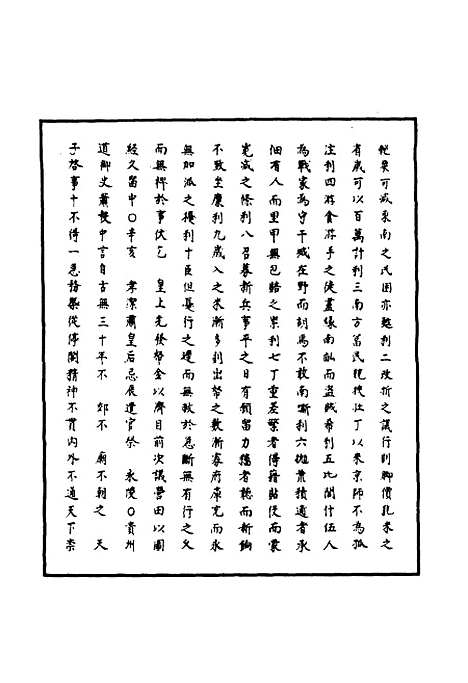 乾矣可减東南之民困亦趣利二改折之議行則脚價乾米之
有歲可以百萬計利三南方富民挽挽壯丁以來京師不為孤
注利四游食游手之徒盡緣南畝而盜賊希利五比閭什伍人
為戰家為守干城在野而胡馬不敢南嘶利六拋荒積逋者承
佃有人而里甲無包賠之累利七丁重差繁者得藉貼役而蒙
寬减之條利八召募新兵事平之日有領留力穡者聽而新餉
不致坐糜利九歲入之米漸多利出帑之數漸寡府庫充而永
無加派之擾利十臣但憂行之遲而無救於急斷無有行之久
而無稗於事伏乞　皇上先發帑金以濟目前次議營田以圖
經久留中〇辛亥　孝潔肅皇后忌辰遣官祭　永陵〇貴州
道御史蕭毅中言自古無三十年不　郊不　廟不朝之　天
子啓事十不得一急務槩從停閣精神不貫内外不通天下柰